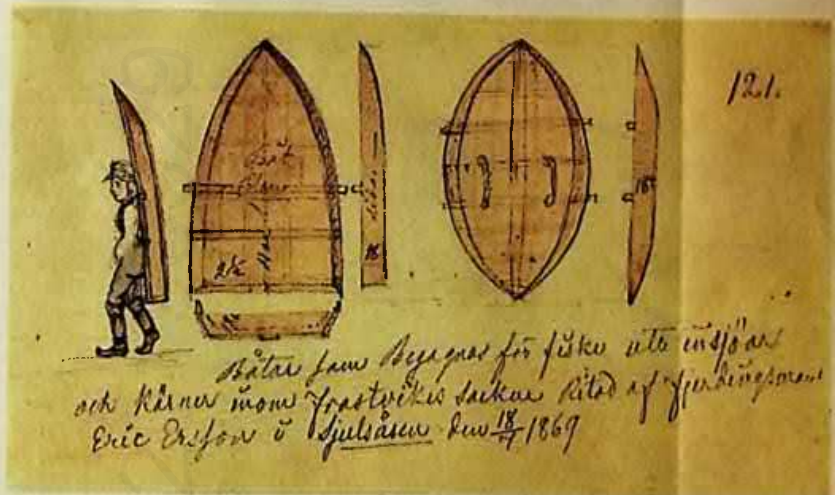 121.
Båt
2½
18
18
Båtar som Begagnas för fiske uti insjöar
och kärner inom frostvikes Socken Ritad af fjerdingsman
Eric Ersson i Sjulsåsen den 18/7 1869